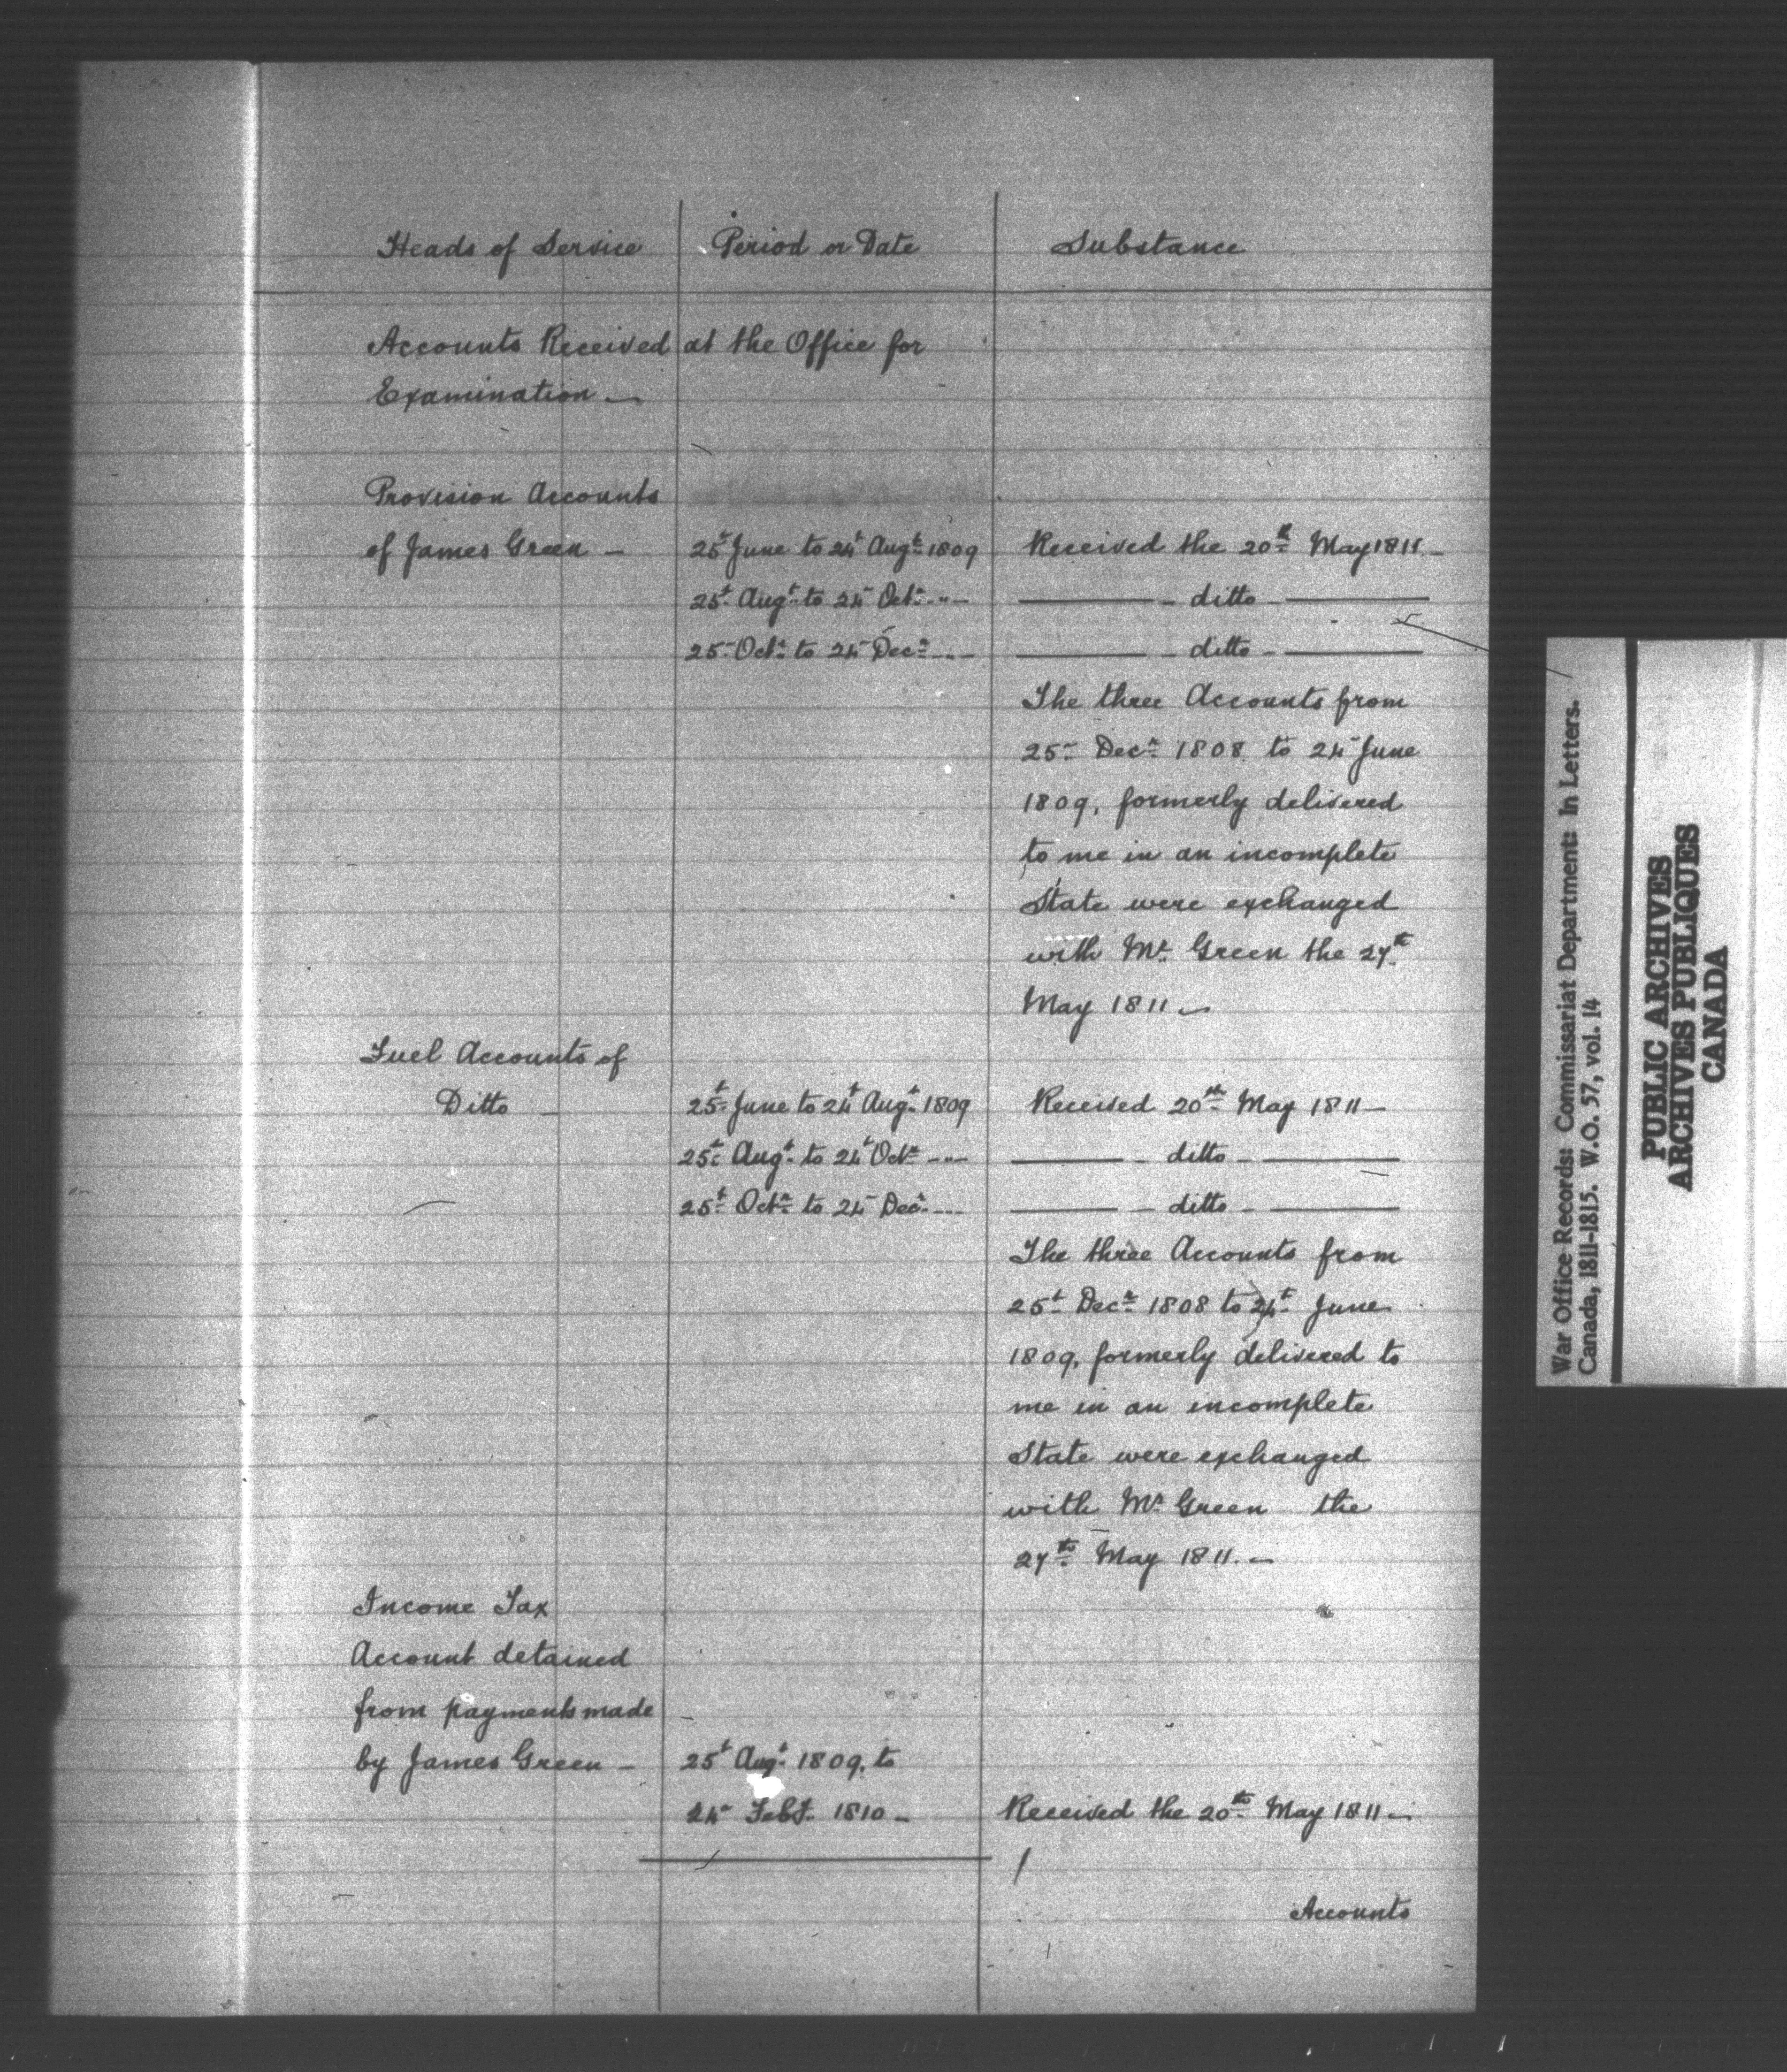 Heads of Service Period or Date Substance
Accounts Received at the Office for
Examination —
Provision Accounts
of James Green — 25t June to 24t Augt 1809 Received the 20th May 1811 —
25t Augt to 24 Octr " — ditto —
25 Octr to 24 Decr " — ditto —
The three Accounts from
25 Decr 1808 to 24 June
1809, formerly delivered
to me in an incomplete
State were exchanged
with Mr Green the 27th
May 1811 —
Fuel Accounts of
Ditto — 25t June to 24t Augt 1809 Received 20th May 1811 —
25t Augt to 24t Octr " — ditto —
25t Octr to 24 Decr " — ditto —
The three Accounts from
25t Decr 1808 to 24t June
1809, formerly delivered to
me in an incomplete
State were exchanged
with Mr Green the
27th May 1811. —
Income Tax
Account detained
from payments made
by James Green — 25t Augt 1809, to
24 Feby 1810 — Received the 20th May 1811 —
Accounts
War Office Records: Commissariat Department: In Letters.
Canada, 1811-1815. W.O. 57, vol. 14
PUBLIC ARCHIVES
ARCHIVES PUBLIQUES
CANADA